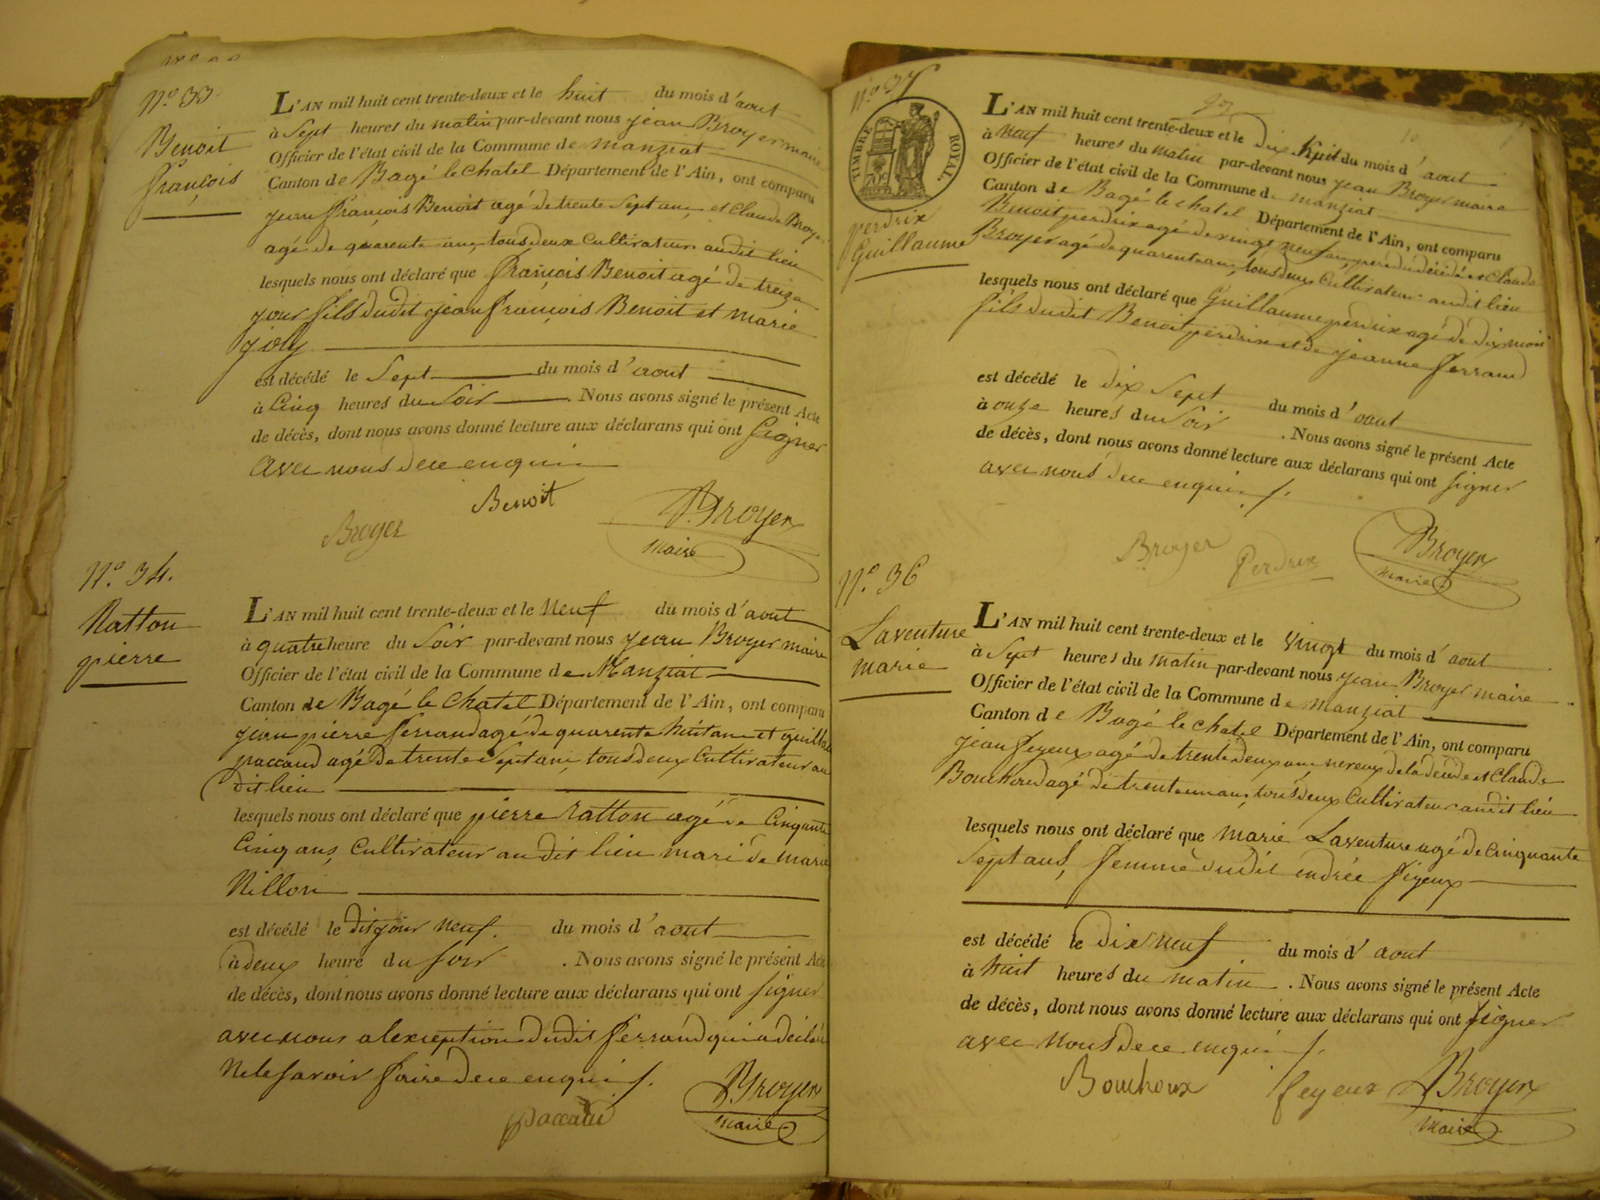 N.º 33.
Benoit
françois
L'AN mil huit cent trente-deux et le huit du mois d'aout
à Sept heures du matin par-devant nous jean Broyer maire
Officier de l'état civil de la Commune de manziat
Canton de Bagé le chatel Département de l'Ain, ont comparu
jean françois Benoit agé de trente Sept ans, et Claude Broyer
agé de quarente ans, tous deux Cultivateurs audit lieu
lesquels nous ont déclaré que françois Benoit agé de treize
jour fils dudit jean françois Benoit et marie
joly
est décédé le Sept du mois d'aout
à Cinq heures du Soir . Nous avons signé le présent Acte
de décès, dont nous avons donné lecture aux déclarans qui ont Signer
avec nous de ce enquis
Benoit
Broyer
Broyer
maire
N.º 34.
Ratton
pierre
L'AN mil huit cent trente-deux et le Neuf du mois d'aout
à quatre heure du Soir par-devant nous jean Broyer maire
Officier de l'état civil de la Commune de Manziat
Canton de Bagé le Chatel Département de l'Ain, ont comparu
jean pierre ferrand agé de quarente huit ans et guilla
paccaud agé de trente Sept ans, tous deux Cultivateur au
dit lieu
lesquels nous ont déclaré que pierre ratton agé de Cinquante
Cinq ans, Cultivateur au dit lieu mari de marie
Nillon
est décédé le dit jour neuf. du mois d'aout
à deux heure du soir . Nous avons signé le présent Acte
de décès, dont nous avons donné lecture aux déclarans qui ont signer
avec nous a lexception dudit ferrand qui a déclaré
Ne le savoir faire de ce enquis
Broyer
maire
paccaud
N.º 35
TIMBRE ROYAL.
perdrix
Guillaume
L'AN mil huit cent trente-deux et le dix huit du mois d'aout
à neuf heures du matin par-devant nous jean Broyer maire
Officier de l'état civil de la Commune de manziat
Canton de Bagé le chatel Département de l'Ain, ont comparu
Benoit perdrix agé de vingt neuf ans, pere du décédé et Claude
Broyer agé de quarente ans, tous deux Cultivateur audit lieu
lesquels nous ont déclaré que Guillaume perdrix agé de dix mois
fils dudit Benoit perdrix et de jeanne ferrand
est décédé le dix Sept du mois d'aout
à onze heures du Soir . Nous avons signé le présent Acte
de décès, dont nous avons donné lecture aux déclarans qui ont signer
avec nous de ce enquis
Broyer
Perdrix
Broyer
maire
N.º 36
Laventure
marie
L'AN mil huit cent trente-deux et le vingt du mois d'aout
à Sept heures du matin par-devant nous jean Broyer maire
Officier de l'état civil de la Commune de manziat
Canton de Bagé le chatel Département de l'Ain, ont comparu
jean feyeux agé de trente deux ans, neveux de la décédé et Claude
Bouchoud agé de trente un ans, tous deux Cultivateur audit lieu
lesquels nous ont déclaré que marie Laventure agé de Cinquante
Sept ans, femme dudit andrée feyeux
est décédé le dix neuf du mois d'aout
à huit heures du matin . Nous avons signé le présent Acte
de décès, dont nous avons donné lecture aux déclarans qui ont signer
avec nous de ce enquis
Bouchoux
feyeux
Broyer
maire